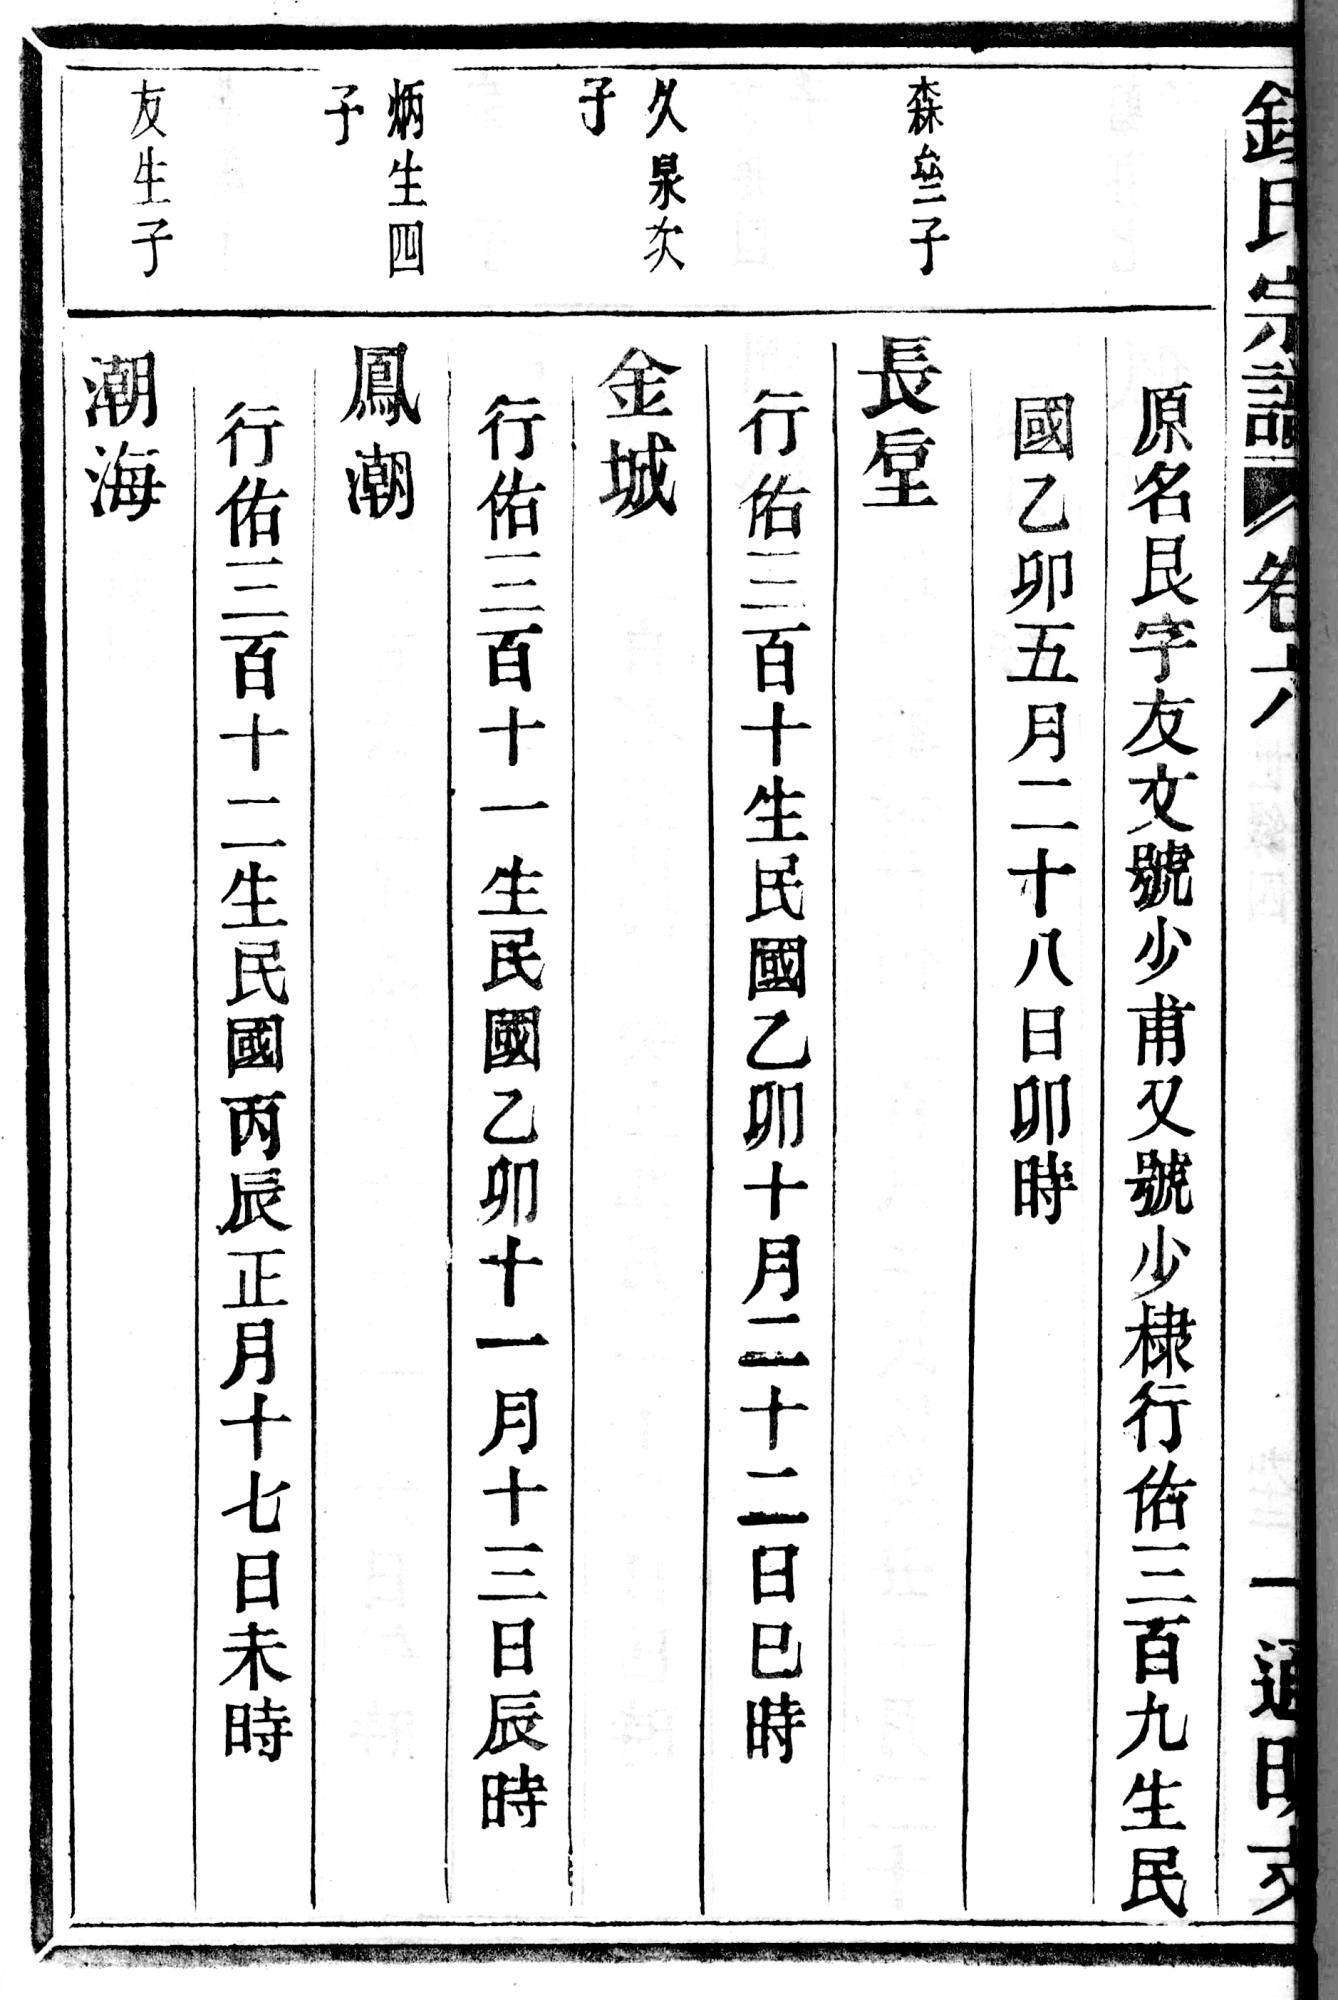 氏宗譜 卷六 一 通明支
原名艮字友文號少甫又號少棣行佑三百九生民
國乙卯五月二十八日卯時
森壘子
長堂
行佑三百十生民國乙卯十月二十二日巳時
久泉次
子
金城
行佑三百十一生民國乙卯十一月十三日辰時
炳生四
子
鳳潮
行佑三百十二生民國丙辰正月十七日未時
友生子
潮海